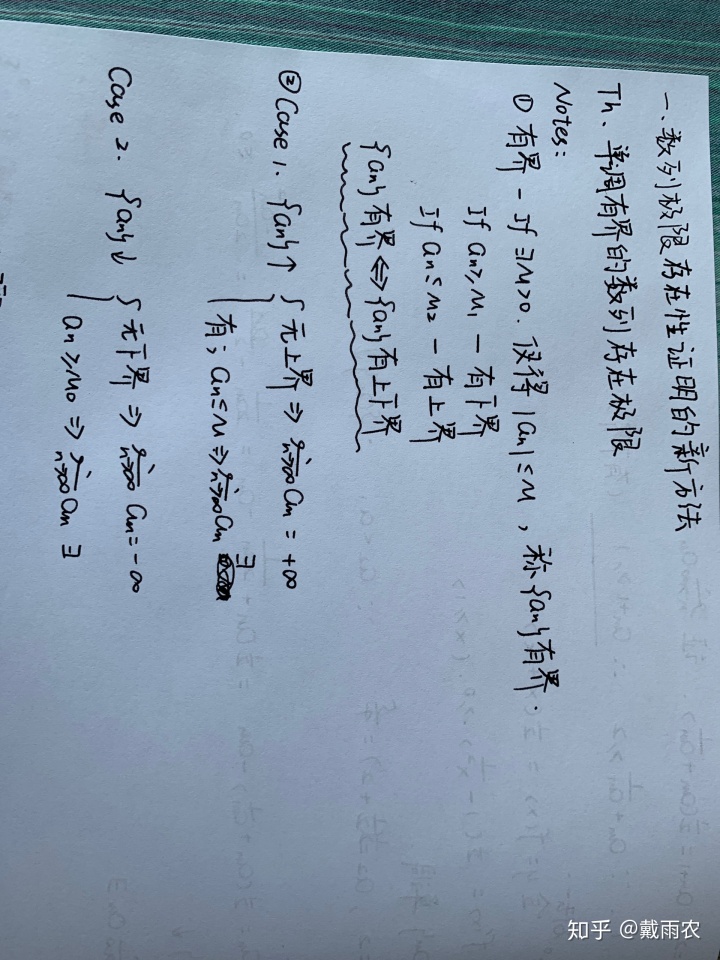 一、数列极限存在性证明的新方法
Th. 单调有界的数列存在极限
Notes:
① 有界 - If ∃M>0. 使得 |an|≤M, 称{an}有界.
If an≥M1 — 有下界
If an≤M2 — 有上界
{an}有界⇔{an}有上下界
② Case 1. {an}↑ { 无上界 ⇒ lim n→∞ an = +∞
有; an≤M ⇒ lim n→∞ an ∃
Case 2. {an}↓ { 无下界 ⇒ lim n→∞ an = -∞
an≥M0 ⇒ lim n→∞ an ∃
知乎 @戴雨农